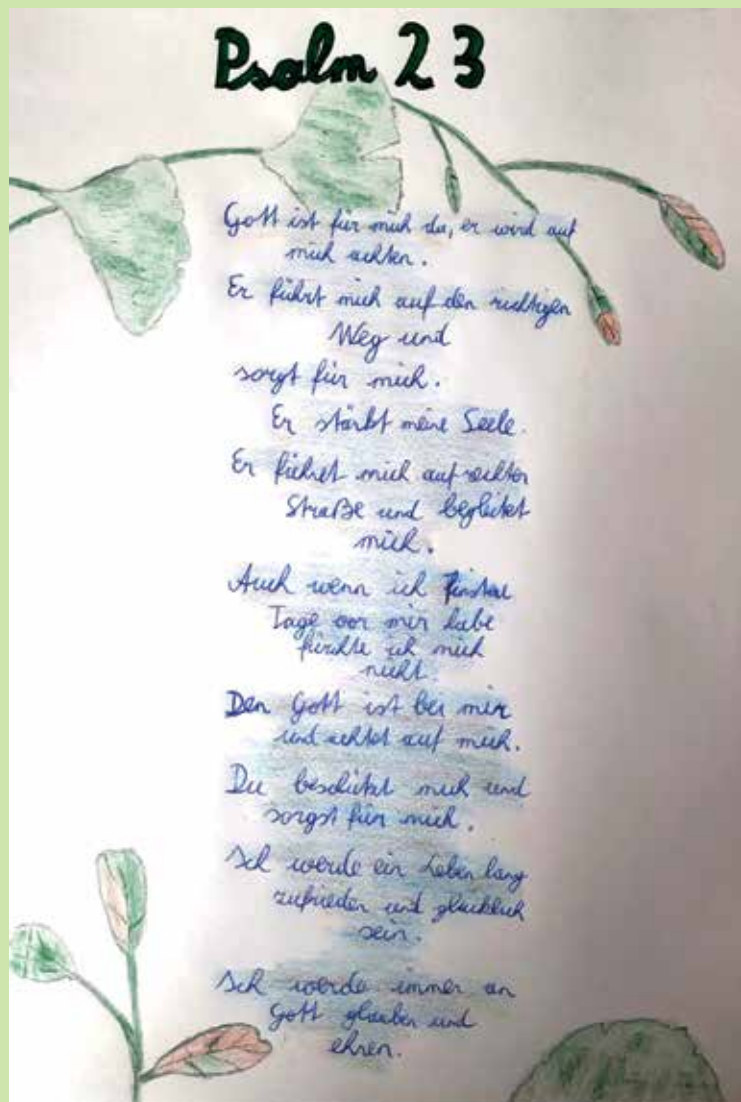 Psalm 23
Gott ist für mich da, er wird auf
mich achten.
Er führt mich auf den richtigen
Weg und
sorgt für mich.
Er stärkt meine Seele.
Er führet mich auf rechter
Straße und begleitet
mich.
Auch wenn ich finstere
Tage vor mir habe
fürchte ich mich
nicht.
Den Gott ist bei mir
und achtet auf mich.
Du beschützt mich und
sorgst für mich.
Ich werde ein Leben lang
zufrieden und glücklich
sein.
Ich werde immer an
Gott glauben und
ehren.